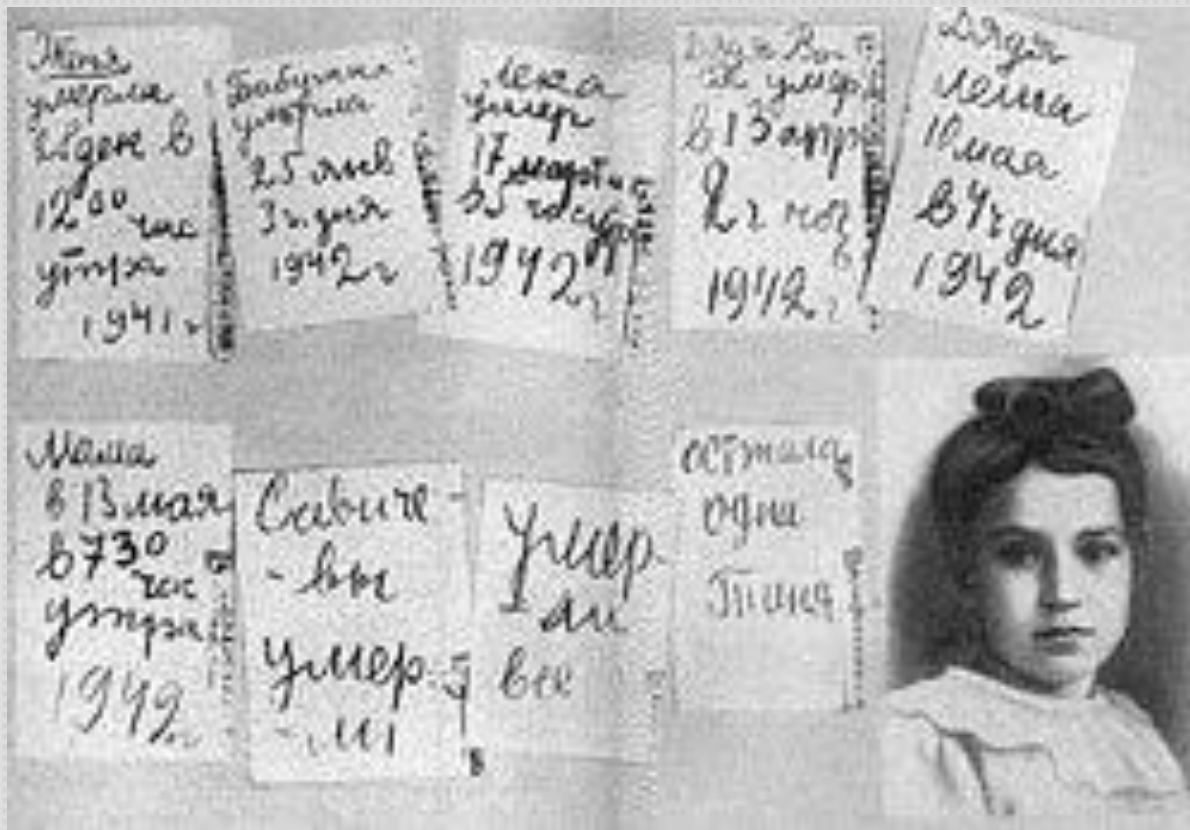 Женя
умерла
28 дек в
12 00 час
утра
1941 г
Бабушка
умерла
25 янв
3 ч. дня
1942 г
Лека
умер
17 марта
в 5 час утр
1942 г
Дядя Ва
ся умер
в 13 апр
2 ч ноч
1942 г
Дядя
Леша
10 мая
в 4 ч дня
1942
Мама
в 13 мая
в 7 30
час
утра
1942 г
Савиче-
- вы
умер-
- ли
Умер-
- ли
все
осталась
одна
Таня